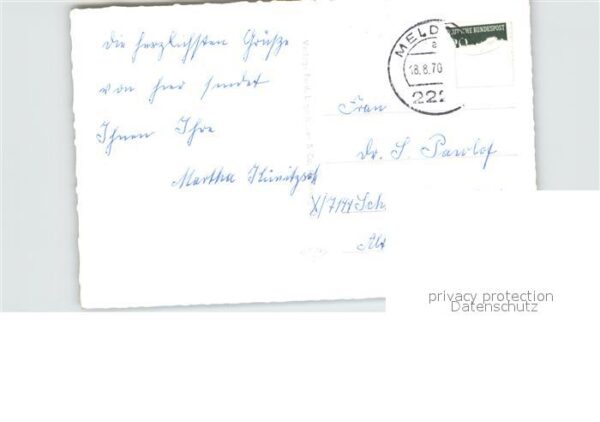 die herzlichsten Grüße
von hier sendet
Ihnen Ihre
Martha
MELD
a
18.8.70
222
DEUTSCHE BUNDESPOST
Frau
Dr. S. Pawlof
X/7144 Sch
Alt
privacy protection
Datenschutz